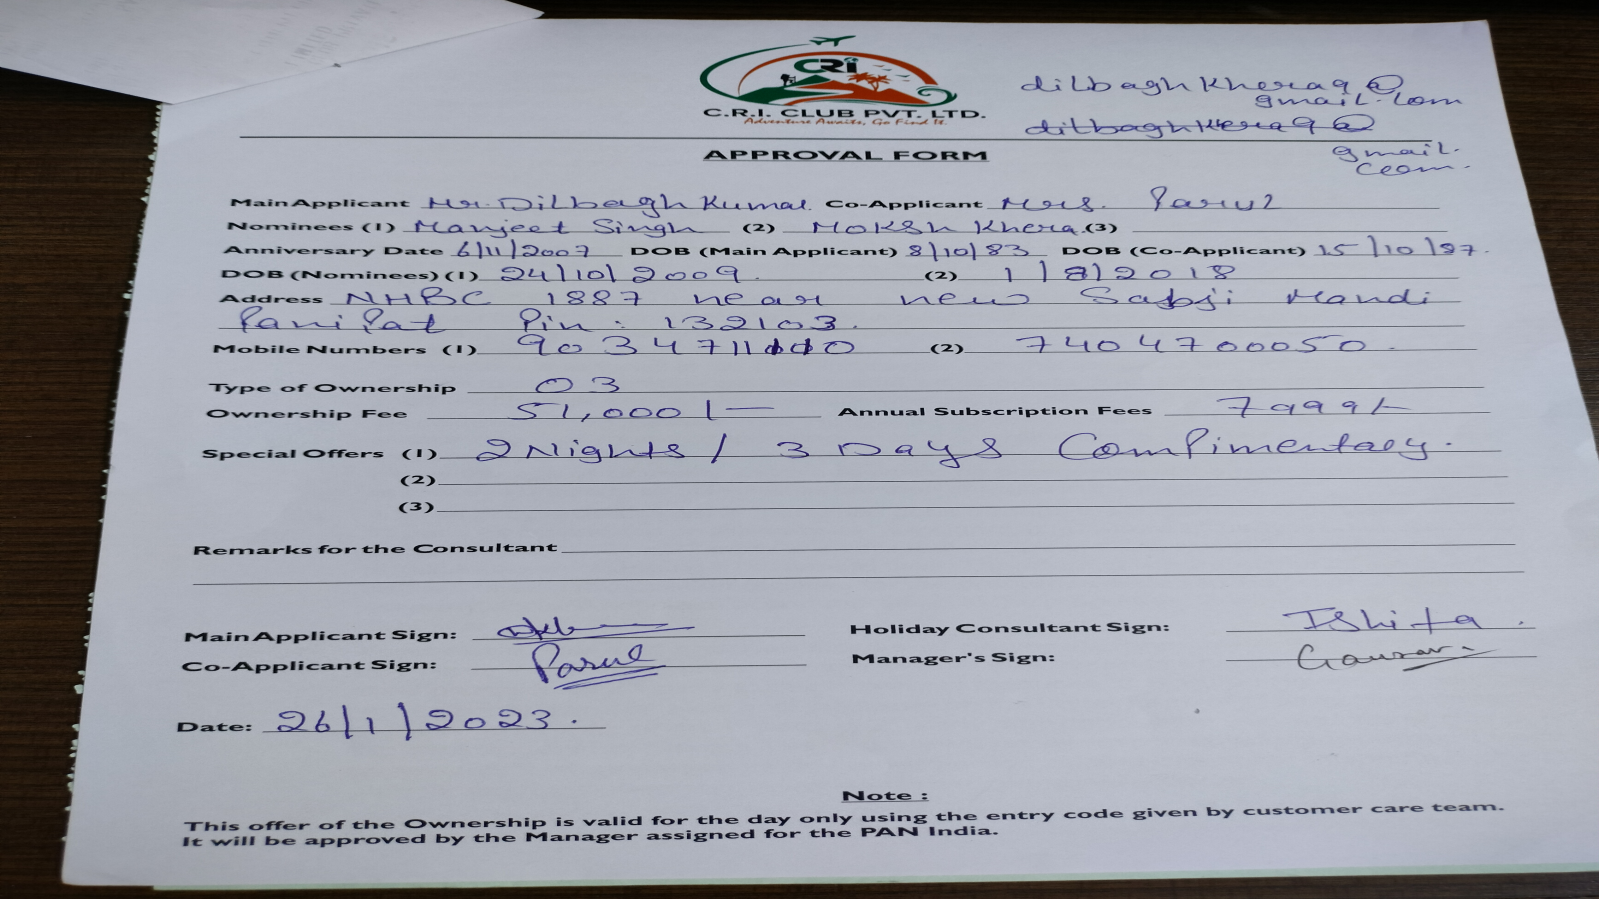 CRi
C.R.I. CLUB PVT. LTD.
Adventure Awaits, Go Find It.
dilbaghkhera9@
gmail.com
dilbaghkhera9@
gmail.
com.
APPROVAL FORM
Main Applicant Mr. Dilbagh Kumar. Co-Applicant Mrs. Parul
Nominees (1) Manjeet Singh (2) Moksh Khera (3)
Anniversary Date 6/11/2007 DOB (Main Applicant) 8/10/83 DOB (Co-Applicant) 15/10/87.
DOB (Nominees) (1) 24/10/2009. (2) 1/8/2018
Address NHBC 1887 near new Sabji Mandi
Panipat Pin: 132103.
Mobile Numbers (1) (2) 7404700050.
Type of Ownership 03
Ownership Fee 51,000/- Annual Subscription Fees 7999/-
Special Offers (1) 2 Nights / 3 Days Complimentary.
(2)
(3)
Remarks for the Consultant
Main Applicant Sign: Holiday Consultant Sign: Ishita.
Co-Applicant Sign: Parul Manager's Sign: Gaurav
Date: 26/1/2023.
Note :
This offer of the Ownership is valid for the day only using the entry code given by customer care team.
It will be approved by the Manager assigned for the PAN India.